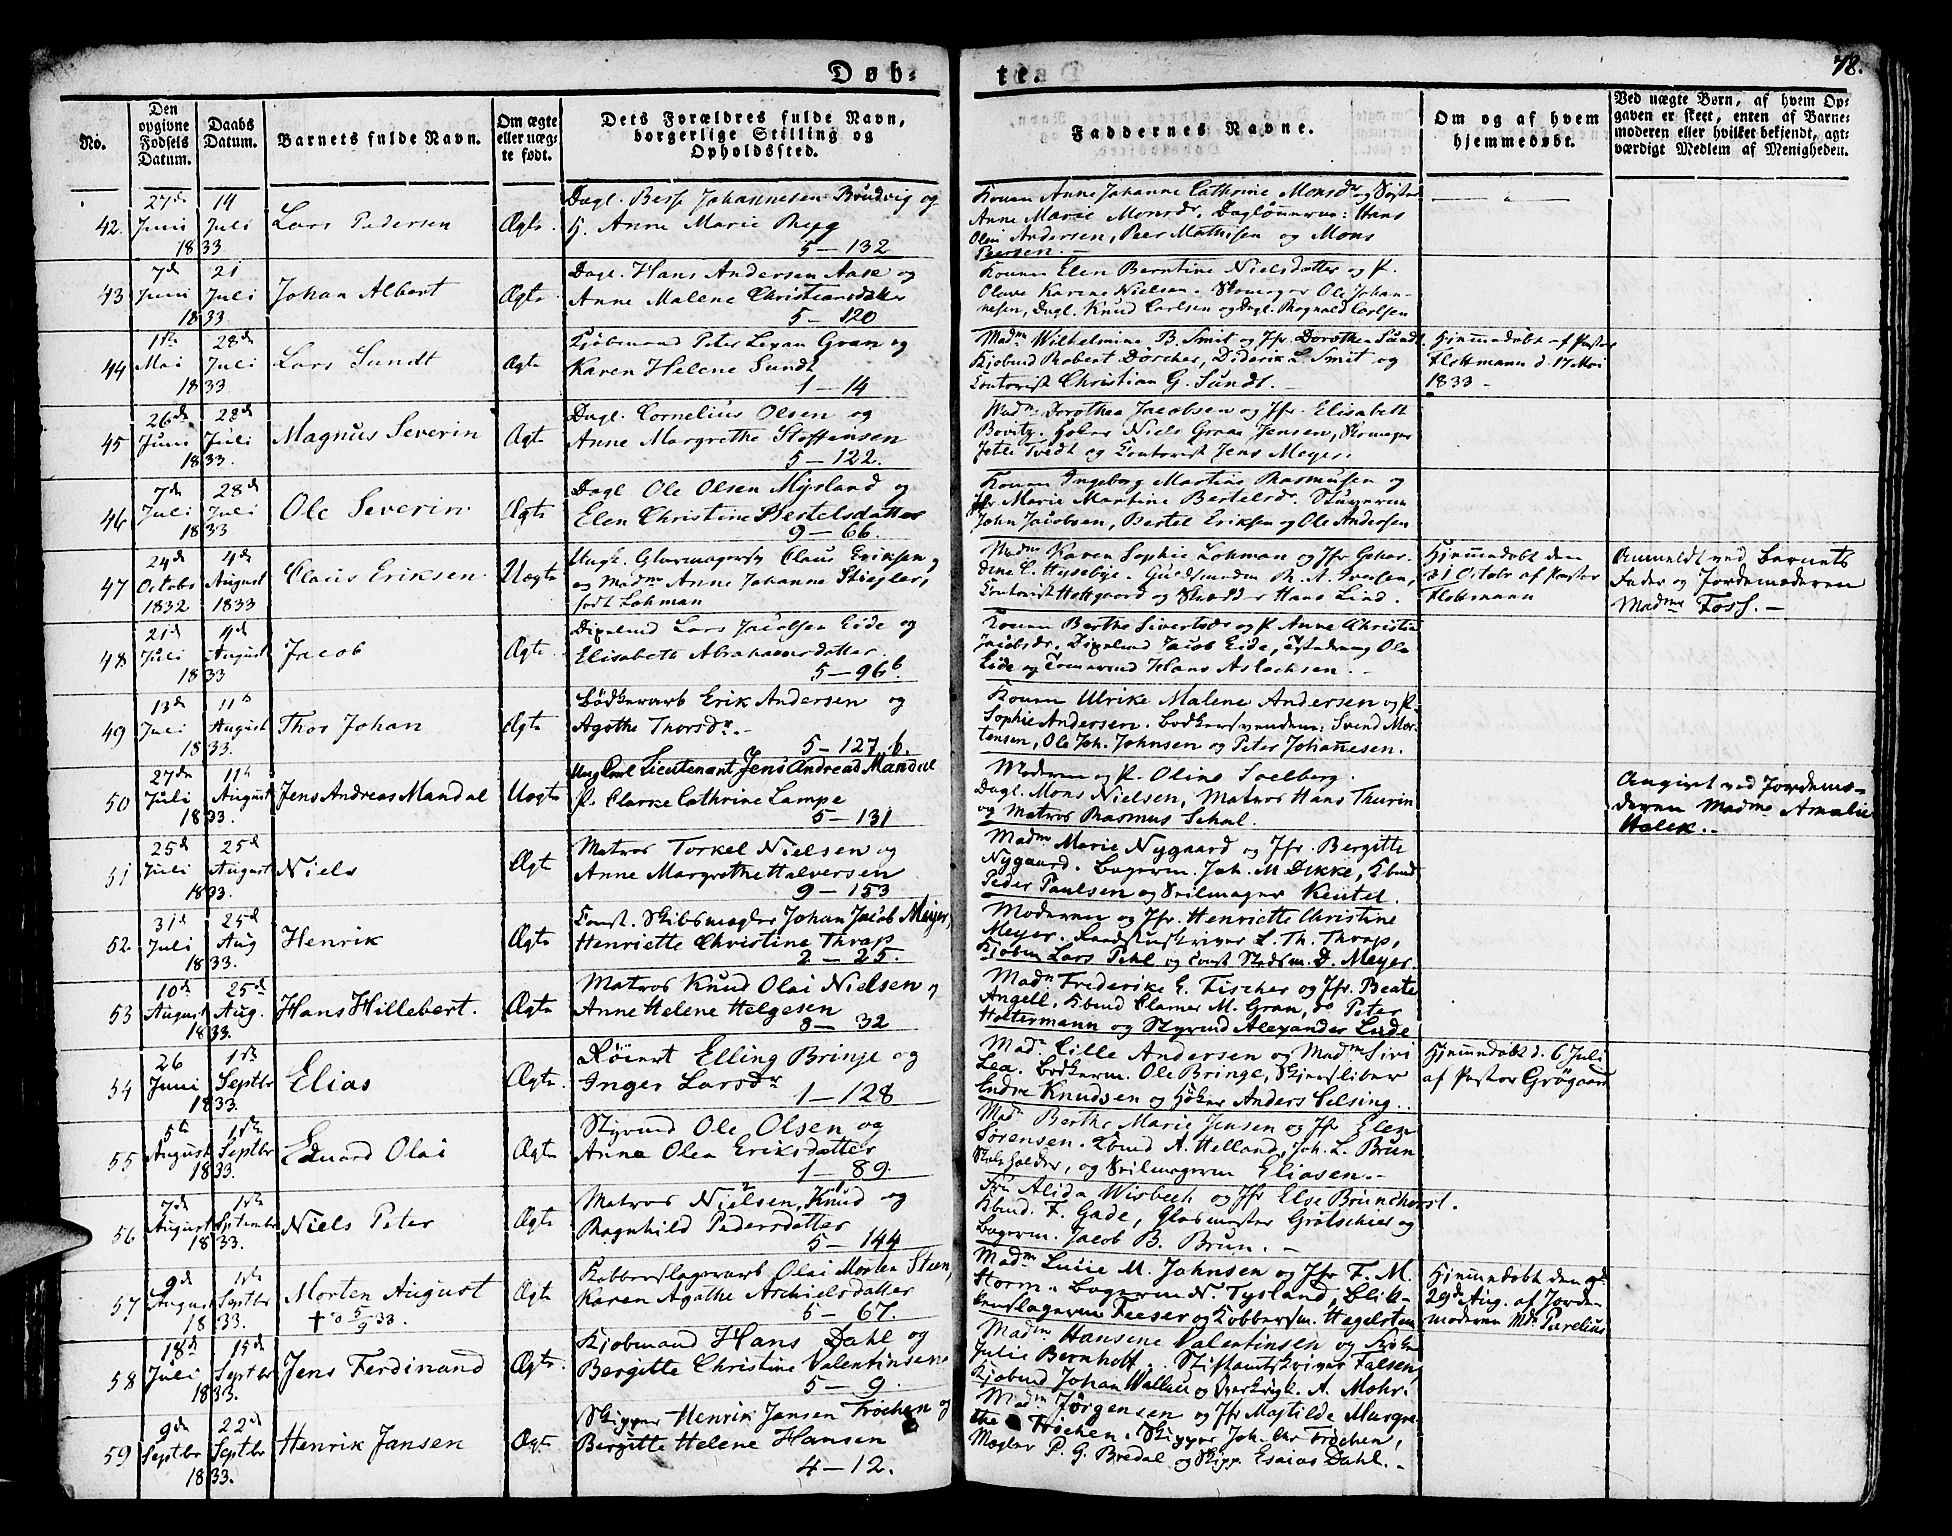 Døb-
te.
78.
No.
Den opgivne Fødsels Datum.
Daabs Datum.
Barnets fulde Navn.
Om ægte eller uægte født.
Dets Forældres fulde Navn, borgerlige Stilling og Opholdssted.
Faddernes Navne.
Om og af hvem hjemmedøbt.
Ved uægte Børn, af hvem Opgaven er skeet, enten af Barnemoderen eller hvilket bekjendt, agtværdigt Medlem af Menigheden.
42. 27de Juni 1833
14 Juli
Lars Pedersen
Ægte.
Dagl. Johannesen Brudvig og
H. Anne Marie
5 — 132
Konen Anne Johanne Cathrine Monsdr og
Anne Marie Monsdr. Daglønnerne: Hans
Olai Andersen, Peer Mathisen og Mons
Peersen.
43 7de Juni 1833
21 Juli
Johan Albert
Ægte
Dagl. Hans Andersen Aase og
Anne Malene Christiansdatter
5 — 120
Konen Elen Berntine Nielsdatter og P.
Olave Karine Nielsen. Skomager Ole Johan-
nesen, Dagl. Knud Carlsen og Dagl. Rognald Carlsen
44 1ste Mai 1833
28de Juli
Lars Sundt
Ægte
Kjøbmand Peter Leyan Gran og
Karen Helene Sundt
1 — 14
Madme Wilhelmine B. Smit og Jfr. Dorothea Sundt
Kjøbmd Robert Dörscher, Diderik L. Smit og
Contorist Christian G. Sundt.
Hjemmedøbt af Pastor
Flottmann d. 17 Mai
1833 -
45 26de Juni 1833.
28de Juli
Magnus Severin
Ægte
Dagl. Cornelius Olsen og
Anne Margrethe Stoffensen
5 — 122.
Madme Dorothea Jacobsen og Jfr. Elisabeth
Bovitz. Høker Niels Graae Jensen, Skomager
Peter Tvedt og Contorist Jens Meyer.
46 7de Juli 1833
28de Juli
Ole Severin
Ægte
Dagl Ole Olsen Mysland og
Elen Christine Bertelsdatter
9 — 66.
Konen Ingeborg Martine Rasmusen og
Jfr. Marie Martine Bertelsdr.
John Jacobsen, Bertel Eriksen og Ole Andersen
47 24de Octobr 1832
4de August 1833
Claus Eriksen
Uægte
Ungk. Glarmagersv Claus Eriksen
og Madme Anne Johanne Stiegler,
født Lohman
Madme Karen Sophie Lohman og Jfr Gehar-
dine C. Hyssebye. Guldsmeden R. A. Iversen,
Contorist Holtgaard og Skrædder Hans Lind.
Hjemmedøbt den
31 Octobr af Pastor
Flottmann
Anmeldt ved Barnets
Fader og Jordemoderen
Madme Foss. -
48 21de Juli 1833
4de August
Jacob
Ægte
Lars Jacobsen Eide og
Elisabeth Abrahamsdatter
5 — 96 b.
Konen Berthe Sivertsdr og P. Anne Christine
Jacobsdr. Jacob Eide, Ole
Eide og Hans Aslachsen.
49 13de Juli 1833.
11te August
Thor Johan
Ægte
Bödkersvend Erik Andersen og
Agothe Thorsdr. -
5 — 127. b.
Konen Ulrike Malene Andersen og P.
Sophie Andersen. Bødkersvendene: Svend Mor-
tensen, Ole Joh. Johnsen og Peter Johannesen.
50 27de Juli 1833.
11te August
Jens Andreas Mandal
Uægte
Ungkarl Lieutenant Jens Andreas Mandal
P. Clarke Cathrine Lampe
5 — 131
Moderen og P. Oline Soelberg.
Dagl. Mons Nielsen, Matros Hans Thurin
og Matros Rasmus Schal.
Angivet ved Jordemo-
deren Madme Amalie
Holck. -
51 25de Juli 1833.
25de August
Niels
Ægt
Matros Torkel Nielsen og
Anne Margrethe Halversen
9 — 153
Madme Marie Nygaard og Jfr. Bergitte
Nygaard. Bagerm. Joh. M Dekke, Kbmd
Peder Paulsen og Seilmager Keutel.
52 31de Juli 1833.
25de Aug
Henrik
Ægte
Const. Skibsmægler Johan Jacob Meyer,
Henriette Christine Thrap
2 — 25.
Moderen og Jfr. Henriette Christine
Meyer. L. Th. Thrap,
Kjøbm Lars Pihl og Const D. Meyer.
53 10de August 1833.
25de Aug.
Hans Hillebert.
Ægte
Matros Knud Olai Nielsen og
Anne Helene Helgesen
8 — 32
Madm Frederike E. Fischer og Jfr. Beate
Angell. Kbmd Clamer M. Gran, do Peter
Holtermann og Styrmd Alexander Lude
54 26 Juni 1833.
1ste Septbr
Elias
Ægte.
Elling Bringe og
Inger Larsdr
1 — 128
Madm Cille Andersen og Madme Sivi
Lea. Bødkerm. Ole Bringe, Skjersliber
Endre Knudsen og Høker Anders Celsing.
Hjemmedøbt d. 6 Juli
af Pastor Grøgaard
55 5te August 1833.
1ste Septbr
Eduard Olai
Ægte
Styrmd Ole Olsen og
Anne Olea Eriksdatter
1 — 89.
Madm Berthe Marie Jensen og Jfr Elen
Sørensen. Kbmd A. Helland, Joh. L. Brun
, og Seilmagerm Eliasen. -
56 7de August 1833.
1ste Septembr
Niels Peter
Ægte
Matros Nielsen, Knud og
Ragnhild Pedersdatter
5 — 144
Fru Alida Wisbech og Jfr Else Brunchorst.
Kbmd. F. Gade, Glasmester Grötschier og
Bagerm. Jacob B. Brun. -
57 9de August 1833.
1ste Septbr
Morten August
† d 5/9 33.
Ægte
Kobberslagersvend Olai Morten Steen,
Karen Agathe Archielsdatter
5 — 67.
Madme Lucie M. Johnsen og Jfr F. M.
Storm. Bagerm N. Tysland, Blik-
kenslagerm Feeser og Kobbersm. Hagelsteen
Hjemmedøbt den
29de Aug. af Jorde-
moderen Md Parelius
58 18de Juli 1833.
15de Septbr
Jens Ferdinand
Ægte.
Kjøbmand Hans Dahl og
Bergitte Christine Valentinsen
5 — 9.
Madme Hansene Valentinsen og
Julie Bernhoft. Stiftamtskriver Falsen,
Kjøbmd Johan Wallem og A. Mohr.
59 9de Septbr 1833.
22de Septbr
Henrik Jansen
Ægte
Skipper Henrik Jansen Trøchen og
Bergitte Helene Hansen
4 — 12.
Madm Jørgensen og Jfr Majtilde Margre-
the Trøchen. Skipper Joh. Chr Trøchen,
Mægler P. G. Bredal og Skipp Esaias Dahl. -